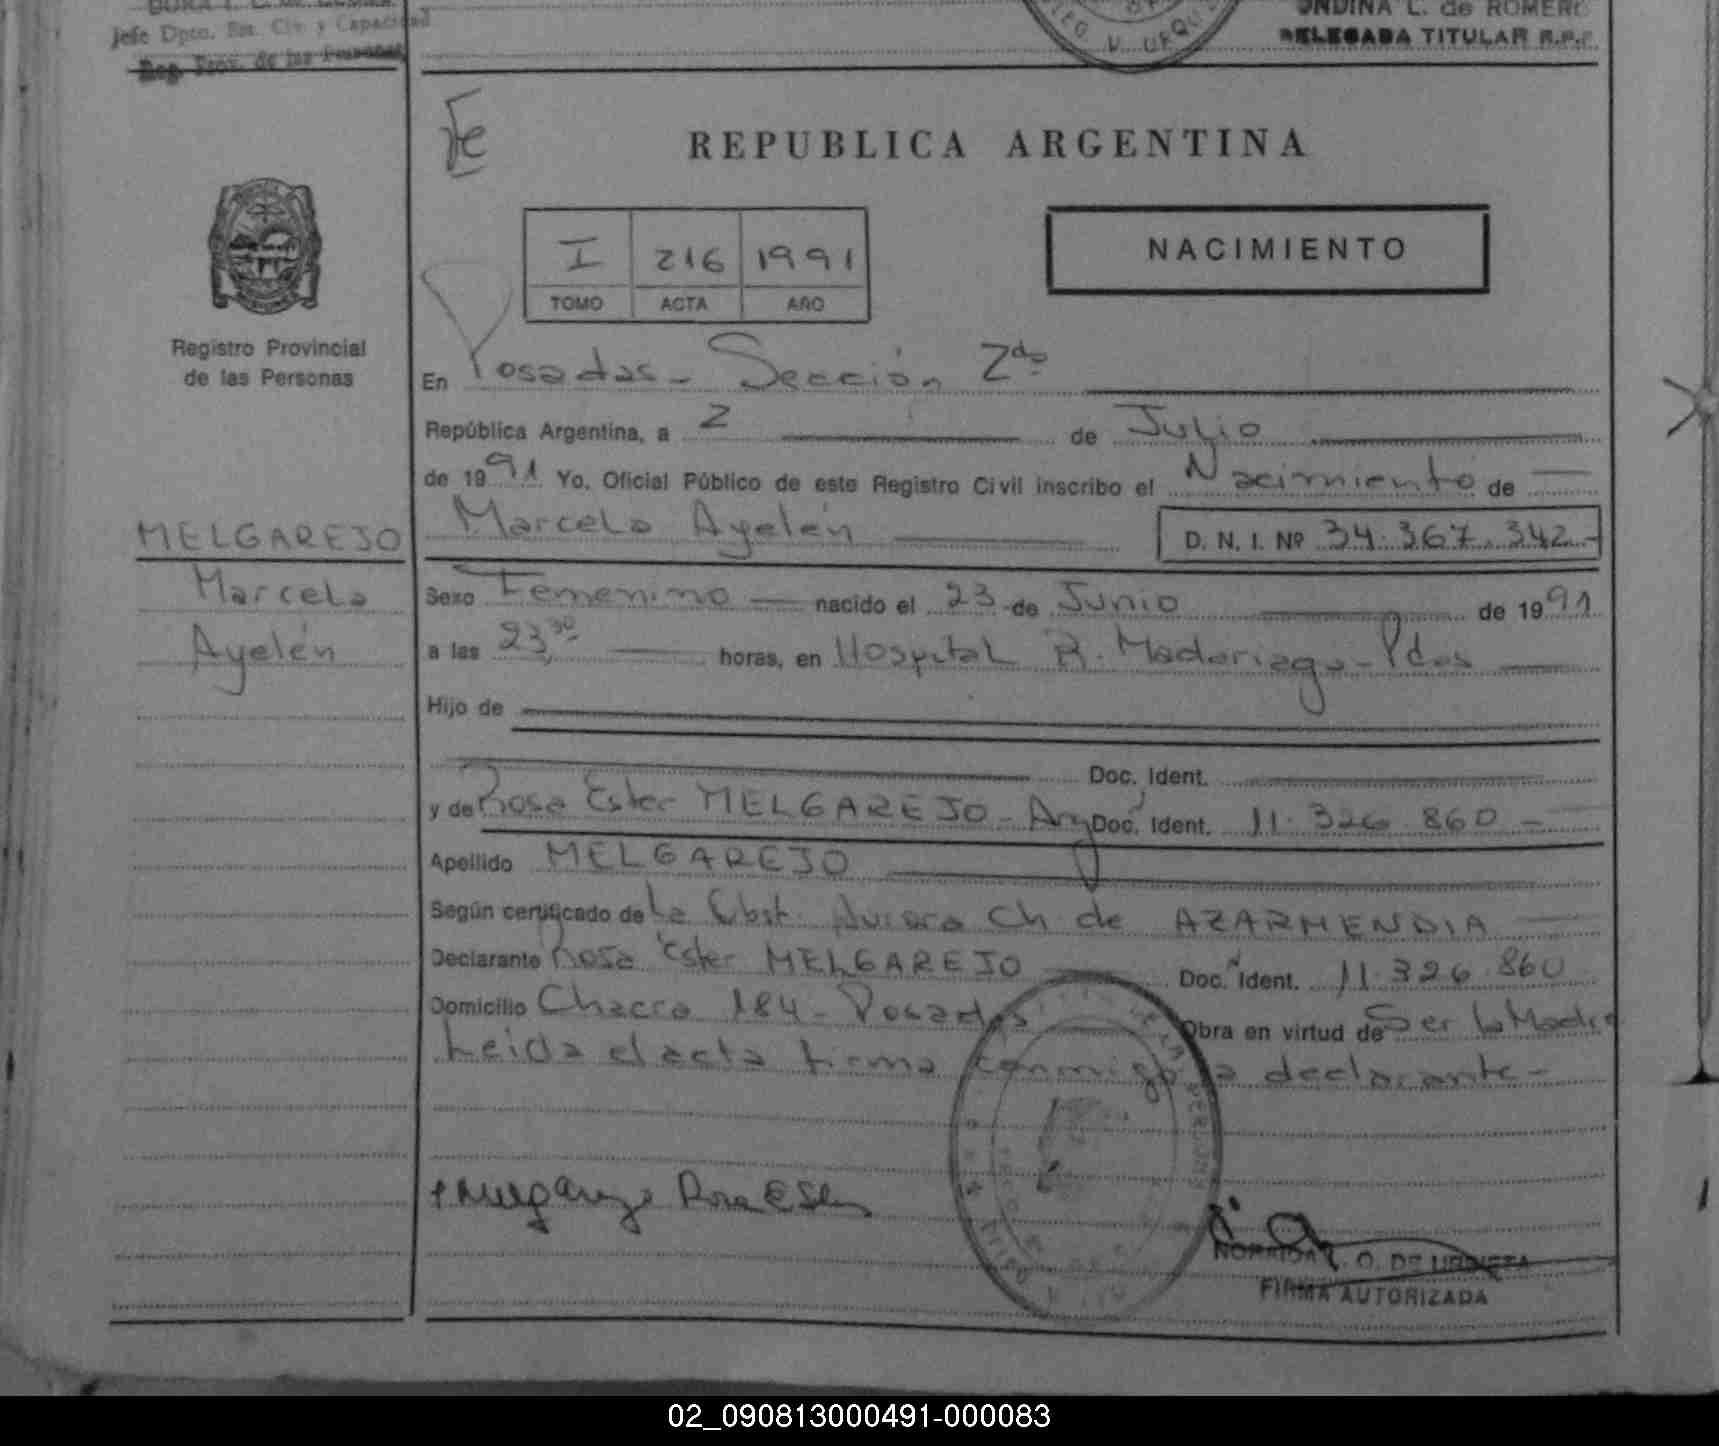 Jefe Dpto. Est. Civ. y Capacidad
Reg. Prov. de las Personas
ONDINA L. de ROMERO
DELEGADA TITULAR R.P.P.
REPUBLICA ARGENTINA
I 216 1991
TOMO ACTA AÑO
NACIMIENTO
Registro Provincial
de las Personas
En Posadas - Sección 2da
República Argentina, a 2 de Julio
de 1991 Yo, Oficial Público de este Registro Civil inscribo el Nacimiento de
Marcela Ayelén D. N. I. Nº 34.367.342-
MELGAREJO
Marcela
Ayelén
Sexo Femenino nacido el 23 de Junio de 1991
a las 23,30 horas, en Hospital R. Madariaga - Pdas
Hijo de
Doc. Ident.
y de Rosa Ester MELGAREJO - Arg Doc. Ident. 11.326.860 -
Apellido MELGAREJO
Según certificado de La Obst. Aurora Ch de AZARMENDIA
Declarante Rosa Ester MELGAREJO Doc. Ident. 11.326.860
Domicilio Chacra 184 - Posadas Obra en virtud de Ser la Madre
Leida el acta firma conmigo la declarante -
Melgarejo Rosa Ester
O. DE URRUETA
FIRMA AUTORIZADA
02_090813000491-000083